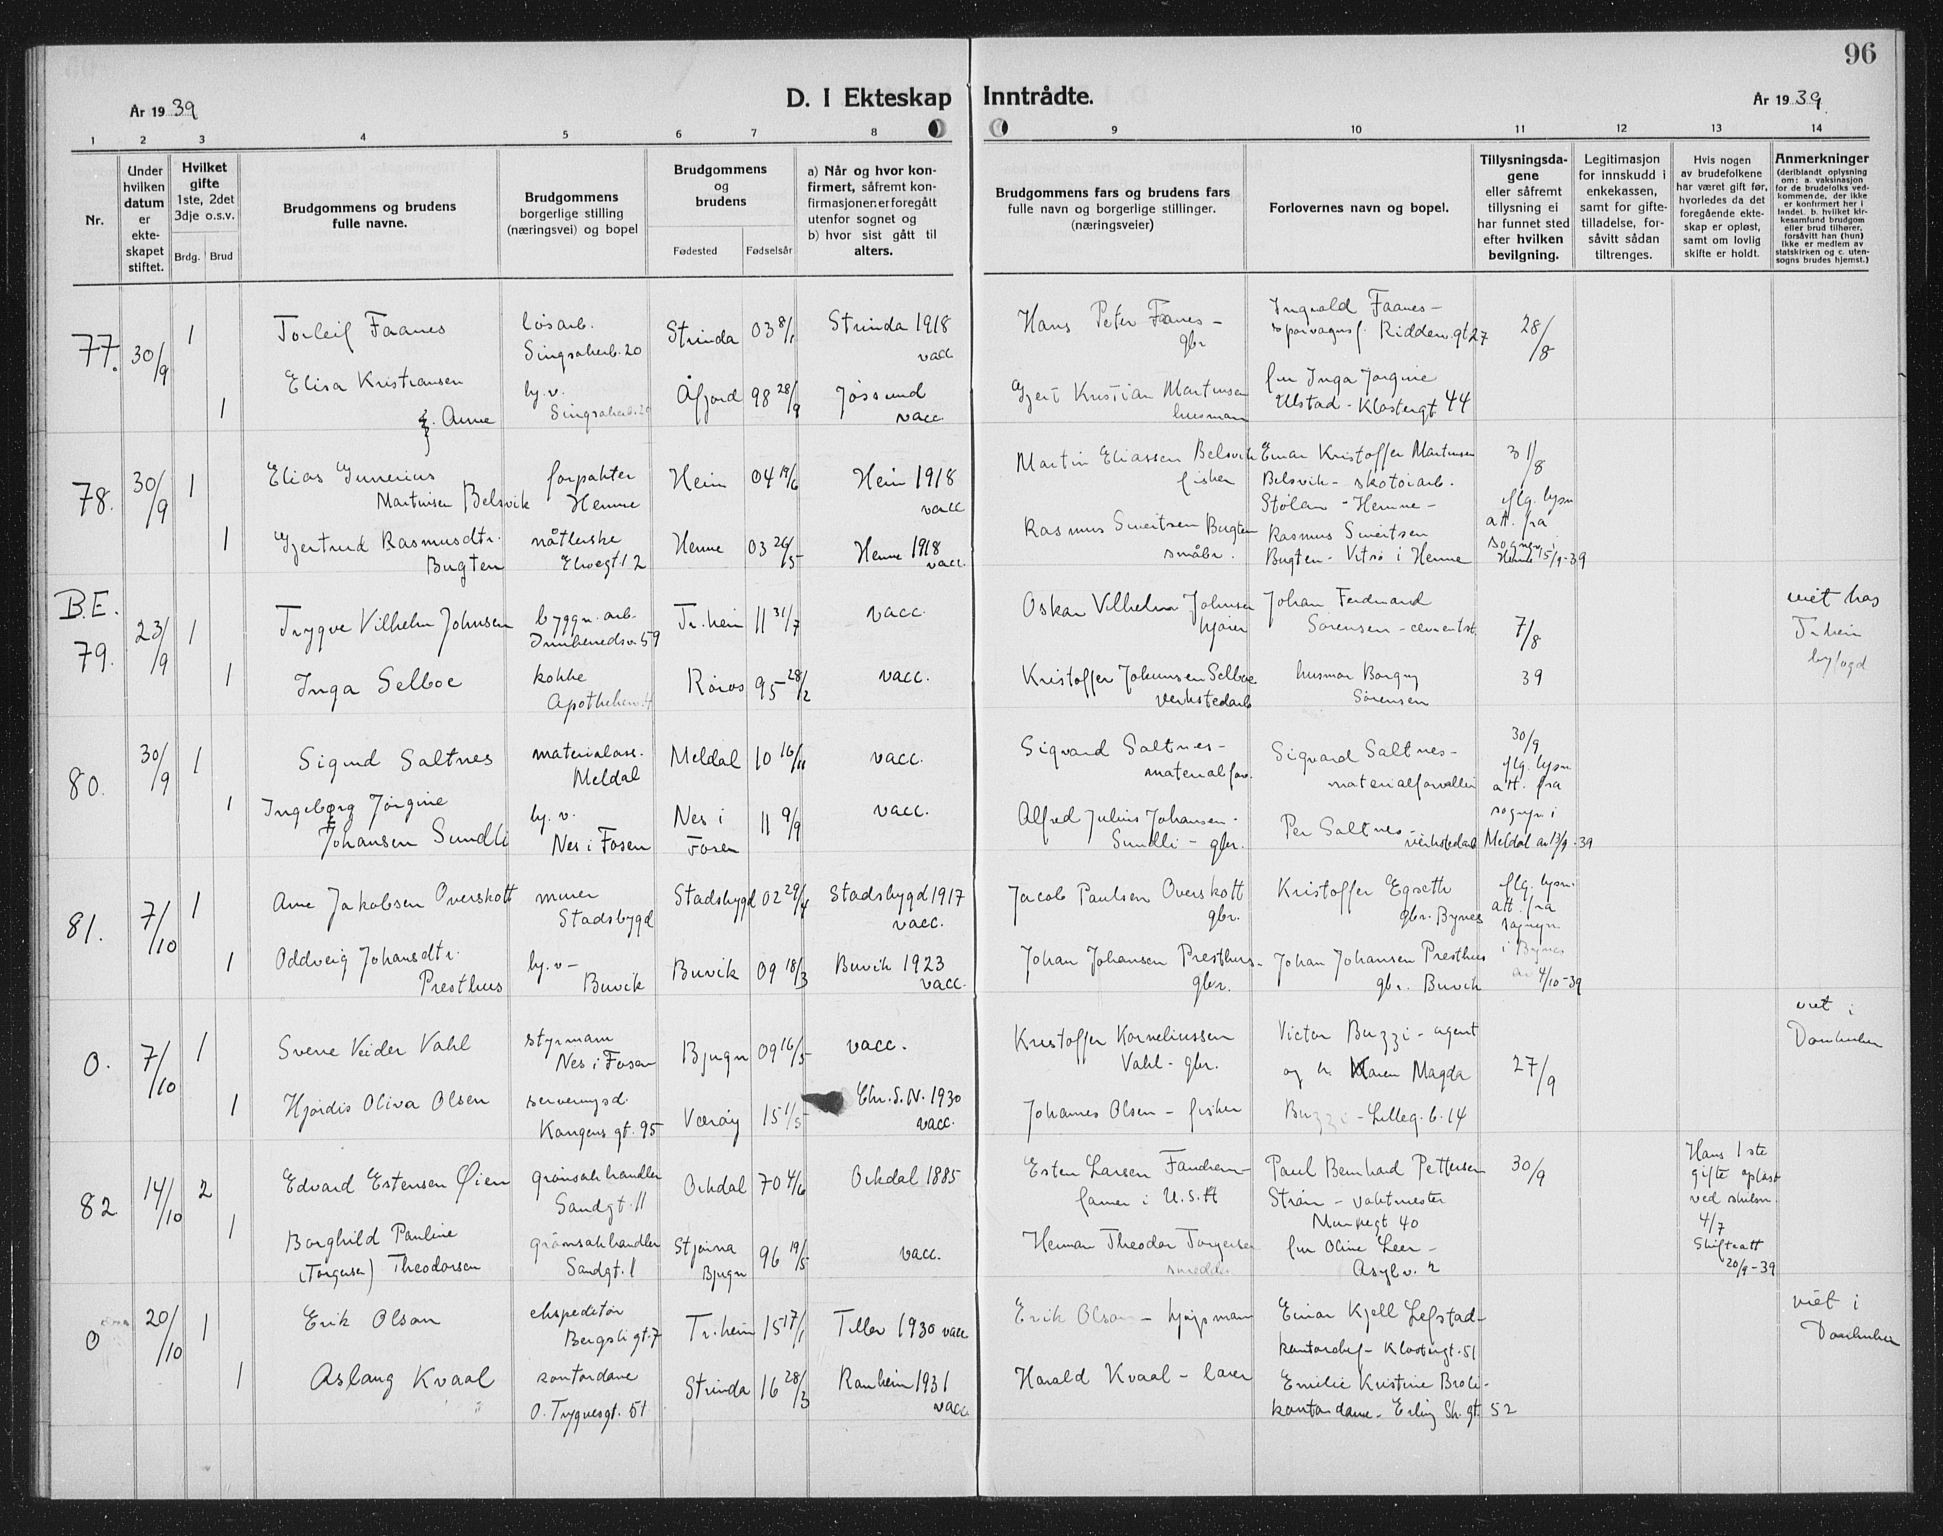 96
År 1939
D. I Ekteskap Inntrådte.
År 1939
1 2 3 4 5 6 7 8 9 10 11 12 13 14
Nr.
Under hvilken datum er ekteskapet stiftet.
Hvilket gifte 1ste, 2det 3dje o.s.v.
Brdg. Brud
Brudgommens og brudens fulle navne.
Brudgommens borgerlige stilling (næringsvei) og bopel
Brudgommens og brudens
Fødested Fødselsår
a) Når og hvor konfirmert, såfremt konfirmasjonen er foregått utenfor sognet og
b) hvor sist gått til alters.
Brudgommens fars og brudens fars fulle navn og borgerlige stillinger. (næringsveier)
Forlovernes navn og bopel.
Tillysningsdagene eller såfremt tillysning ei har funnet sted efter hvilken bevilgning.
Legitimasjon for innskudd i enkekassen, samt for giftetilladelse, forsåvitt sådan tiltrenges.
Hvis nogen av brudefolkene har været gift før, hvorledes da det foregående ekteskap er opløst, samt om lovlig skifte er holdt.
Anmerkninger (deriblandt oplysning om: a. vaksinasjon for de brudefolks vedkommende, der ikke er konfirmert her i landet. b. hvilket kirkesamfund brudgom eller brud tilhører, forsåvitt han (hun) ikke er medlem av statskirken og c. utensogns brudes hjemst.)
77. 30/9 1 Torleif Faanes løsarb. Singsakerb. 20 Strinda 03 8/1 Strinda 1918 vacc Hans Peter Faanes - gbr Ingvald Faanes - sporvagnsf. Ridderv. gt 27 28/8
1 Elisa Kristiansen f. Aune hj. v. Singsakerb. 20 Åfjord 98 28/9 Jøssund vacc. Gjert Kristian Martinsen husmann fru Inga Jørgine Ulstad - Klostergt. 44
78. 30/9 1 Elias Gunerius Martinsen Belsvik forpakter Hemne Heim 04 19/6 Heim 1918 vacc Martin Eliassen Belsvik fisker Einar Kristoffer Martinsen Belsvik - skotøiarb. Stølan - Hemne - 31/8 iflg. lysn. att. fra sognepr. i Hemne 15/9-39
1 Gjertrud Rasmusdtr. Bugten nåtlerske Elvegt. 12 Hemne 03 26/5 Hemne 1918 vacc. Rasmus Sivertsen Bugten småbr. Rasmus Sivertsen Bugten - Vitsø i Hemne
B.E. 79. 23/9 1 Trygve Vilhelm Johnsen byggn. arb. 59 Tr.heim 11 31/7 vacc. Oskar Vilhelm Johnsen kjører Johan Ferdinand Sørensen - cementst. 7/8 39 viet hos Tr.heim byfogd
1 Inga Selboe kokke Apothekerv. 4 Røros 95 28/2 vacc. Kristoffer Johannsen Selboe verkstedarb husmor Borgny Sørensen
80. 30/9 1 Sigurd Saltnes materialass. Meldal Meldal 10 16/11 vacc. Sigvard Saltnes - materialforv. Sigvard Saltnes - materialforvalter 30/9 iflg. lysn att. fra sognepr i Meldal av 13/9-39
1 Ingeborg Jørgine Johansen Sundli hj. v. Nes i Fosen Nes i Fosen 11 9/9 vacc. Alfred Julius Johansen - Sundli - gbr. Per Saltnes - verkstedarb
81. 7/10 1 Arne Jakobsen Overskott murer Stadsbygd Stadsbygd 02 29/4 Stadsbygd 1917 vacc. Jacob Paulsen Overskott gbr. Kristoffer Egseth gbr. Bynes iflg. lysn. att. fra sognepr. i Bynes av 4/10-39
1 Oddveig Johansdtr. Presthus hj. v - Buvik Buvik 09 18/3 Buvik 1923 vacc. Johan Johansen Presthus - gbr. Johan Johansen Presthus gbr. Buvik
0. 7/10 1 Sverre Veider Vahl styrmann Nes i Fosen Bjugn 09 16/5 vacc. Kristoffer Korneliussen Vahl - gbr. Victor Buzzi - agent og h. Karen Magda Buzzi - Lilleg. b. 14 27/9 viet i Domkirken
1 Hjørdis Oliva Olsen serveringsd. Kongens gt. 95 Værøy 15 1/5 Chr. S. N. 1930 vacc. Johannes Olsen - fisker
82 14/10 2 Edvard Estensen Øien grønsakhandler Sandgt. 11 Orkdal 70 4/6 Orkdal 1885 Esten Larsen Fandrem - farmer i U.S.A Paul Bernhard Pettersen Strøm - vaktmester Munkegt 40 30/9 Hans 1ste gifte opløst ved skilsm. 4/7 Skifteatt 20/9-39
1 Borghild Pauline (Torgersen) Theodorsen grønsakhandler Sandgt. 1 Stjørna Bjugn 96 19/5 vacc. Herman Theodor Torgersen smedm. fru Oline Leer - Asylv. 2
0 20/10 1 Erik Olson ekspeditør Bergsligt. 7 Tr.heim 15 17/1 Tiller 1930 vacc Erik Olson - kjøpmann Einar Kjell Lefstad - kontorchef - Klostergt. 51 viet i Domkirken
1 Aslaug Kvaal kontordame O. Trygvesgt. 51 Strinda 16 28/3 Ranheim 1931 vacc. Harald Kvaal - lærer Emilie Kristine Broli - kontordame - Erling Sk. gt. 52